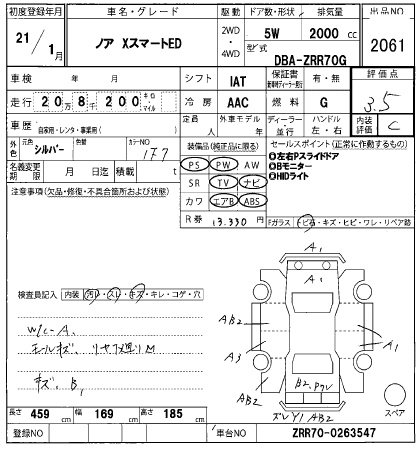 初度登録年月 車名・グレード 駆動 ドア数・形状 排気量 出品NO
21/1月 ノア XスマートED 2WD・4WD 5W 2000cc 2061
型式 DBA-ZRR70G
車検 年 月 シフト IAT 保証書 有・無 評価点
走行 20万8千200キロ・マイル 冷房 AAC 燃料 G 3.5
車歴 自家用・レンタ・事業用( ) 定員 人 外車モデル 年 ディーラー・並行 ハンドル 左・右 内装評価 C
外色 元色 シルバー 色替 カラーNO 177 装備品(純正品に限る) セールスポイント(正常に作動するもの)
名義変更期限 月 日迄 積載 t PS PW AW ❶左右Pスライドドア
注意事項(欠品・修復・不具合箇所および状態) SR TV ナビ ❷Bモニター
カワ エアB ABS ❸HIDライト
R券 13,330円 Fガラス トビ石・キズ・ヒビ・ワレ・リペア跡
A1
A1
検査員記入 内装 汚レ・スレ・キズ・キレ・コゲ・穴
AB2
W/C-A
A3 A1
キズ、B1
AB2 B2
Y1 AB2
スペア
長さ 459cm 幅 169cm 高さ 185cm
登録NO 車台NO ZRR70-0263547